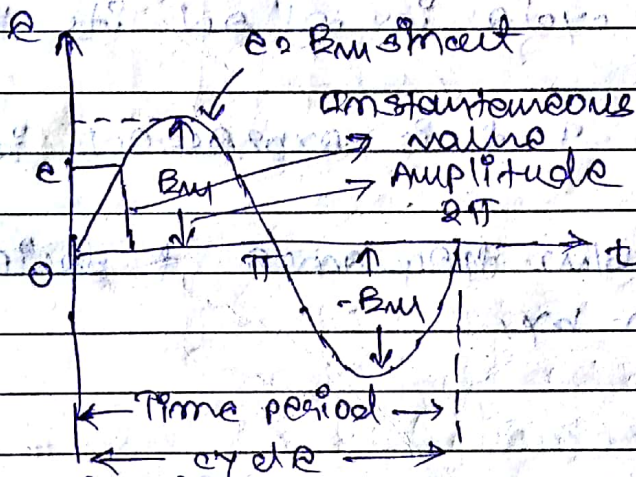 e
e = Em sinωt
Instantaneous
value
e
Em
Amplitude
2π
0
π
t
-Em
Time period
cycle